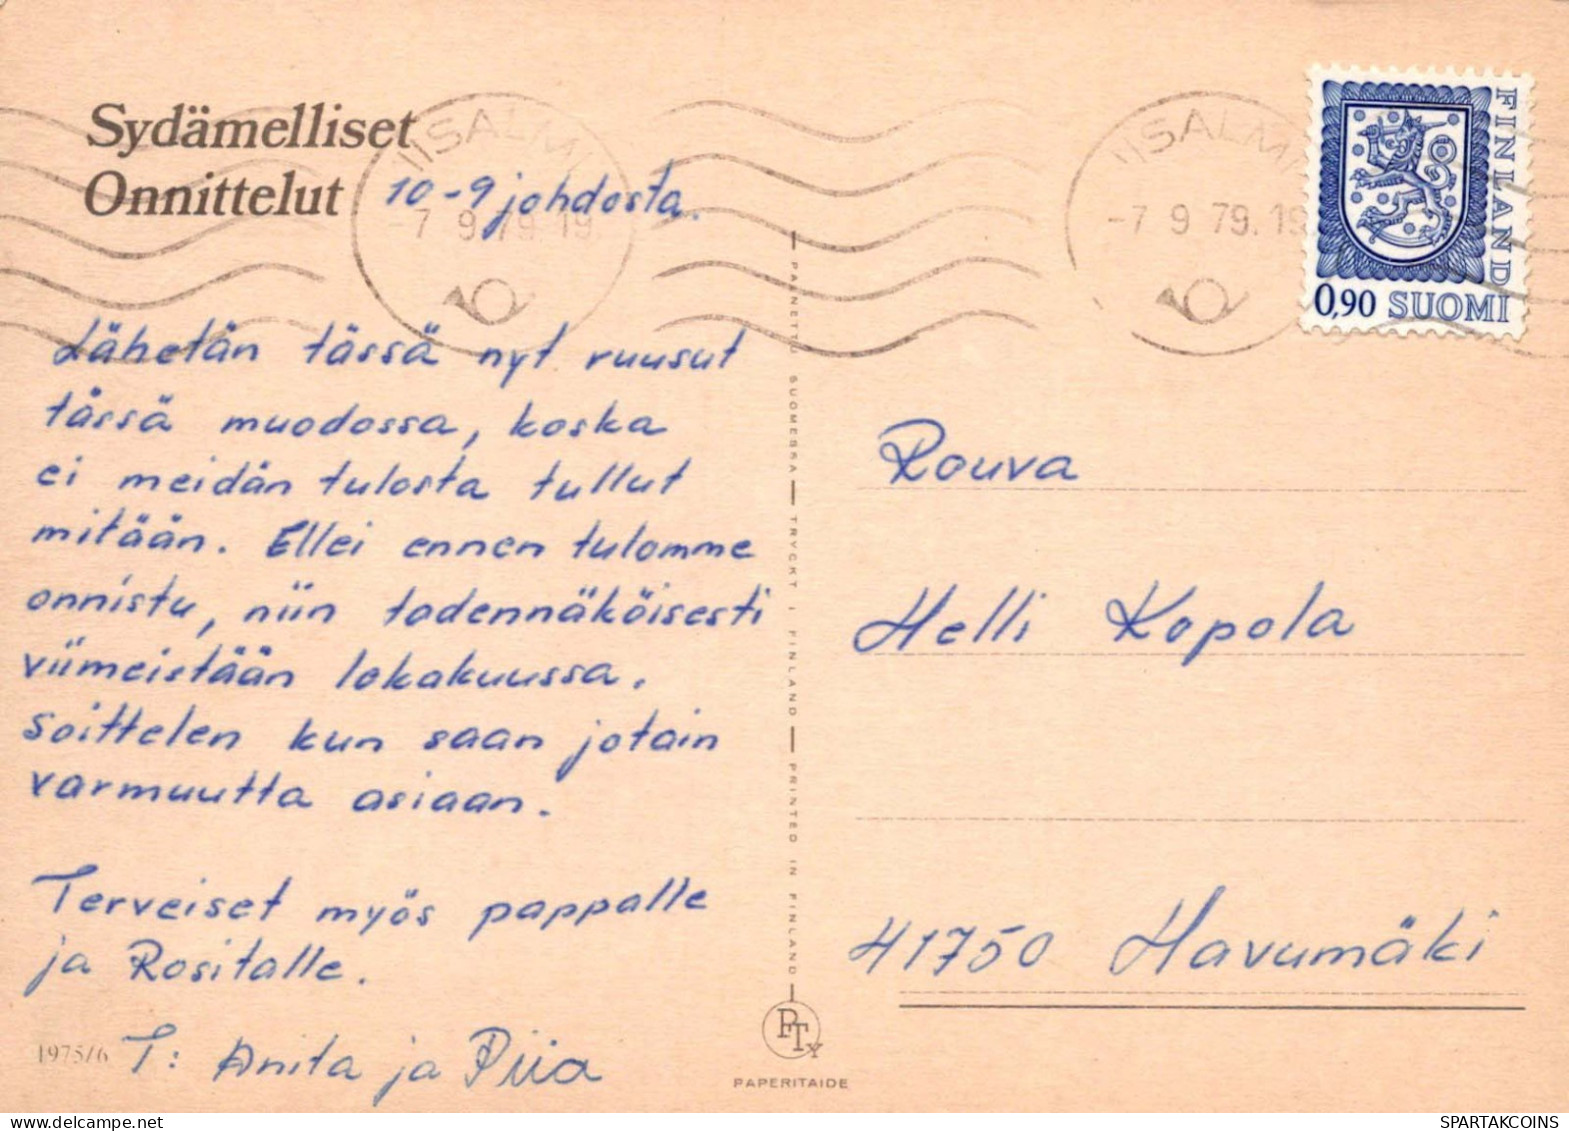 Sydämelliset
Onnittelut 10-9 johdosta.
IISALMI
-7 9 79.19
IISALMI
-7 9 79.19
FINLAND
0,90 SUOMI
Lähetän tässä nyt ruusut
tässä muodossa, koska
ei meidän tulosta tullut
mitään. Ellei ennen tulomme
onnistu, niin todennäköisesti
viimeistään lokakuussa.
Soittelen kun saan jotain
varmuutta asiaan.
Terveiset myös pappalle
ja Rositalle.
T: Anita ja Piia
1975/6
PAINETTU SUOMESSA — TRYCKT I FINLAND — PRINTED IN FINLAND
PTy
PAPERITAIDE
Rouva
Helli Kopola
41750 Havumäki
SPARTAKCOINS